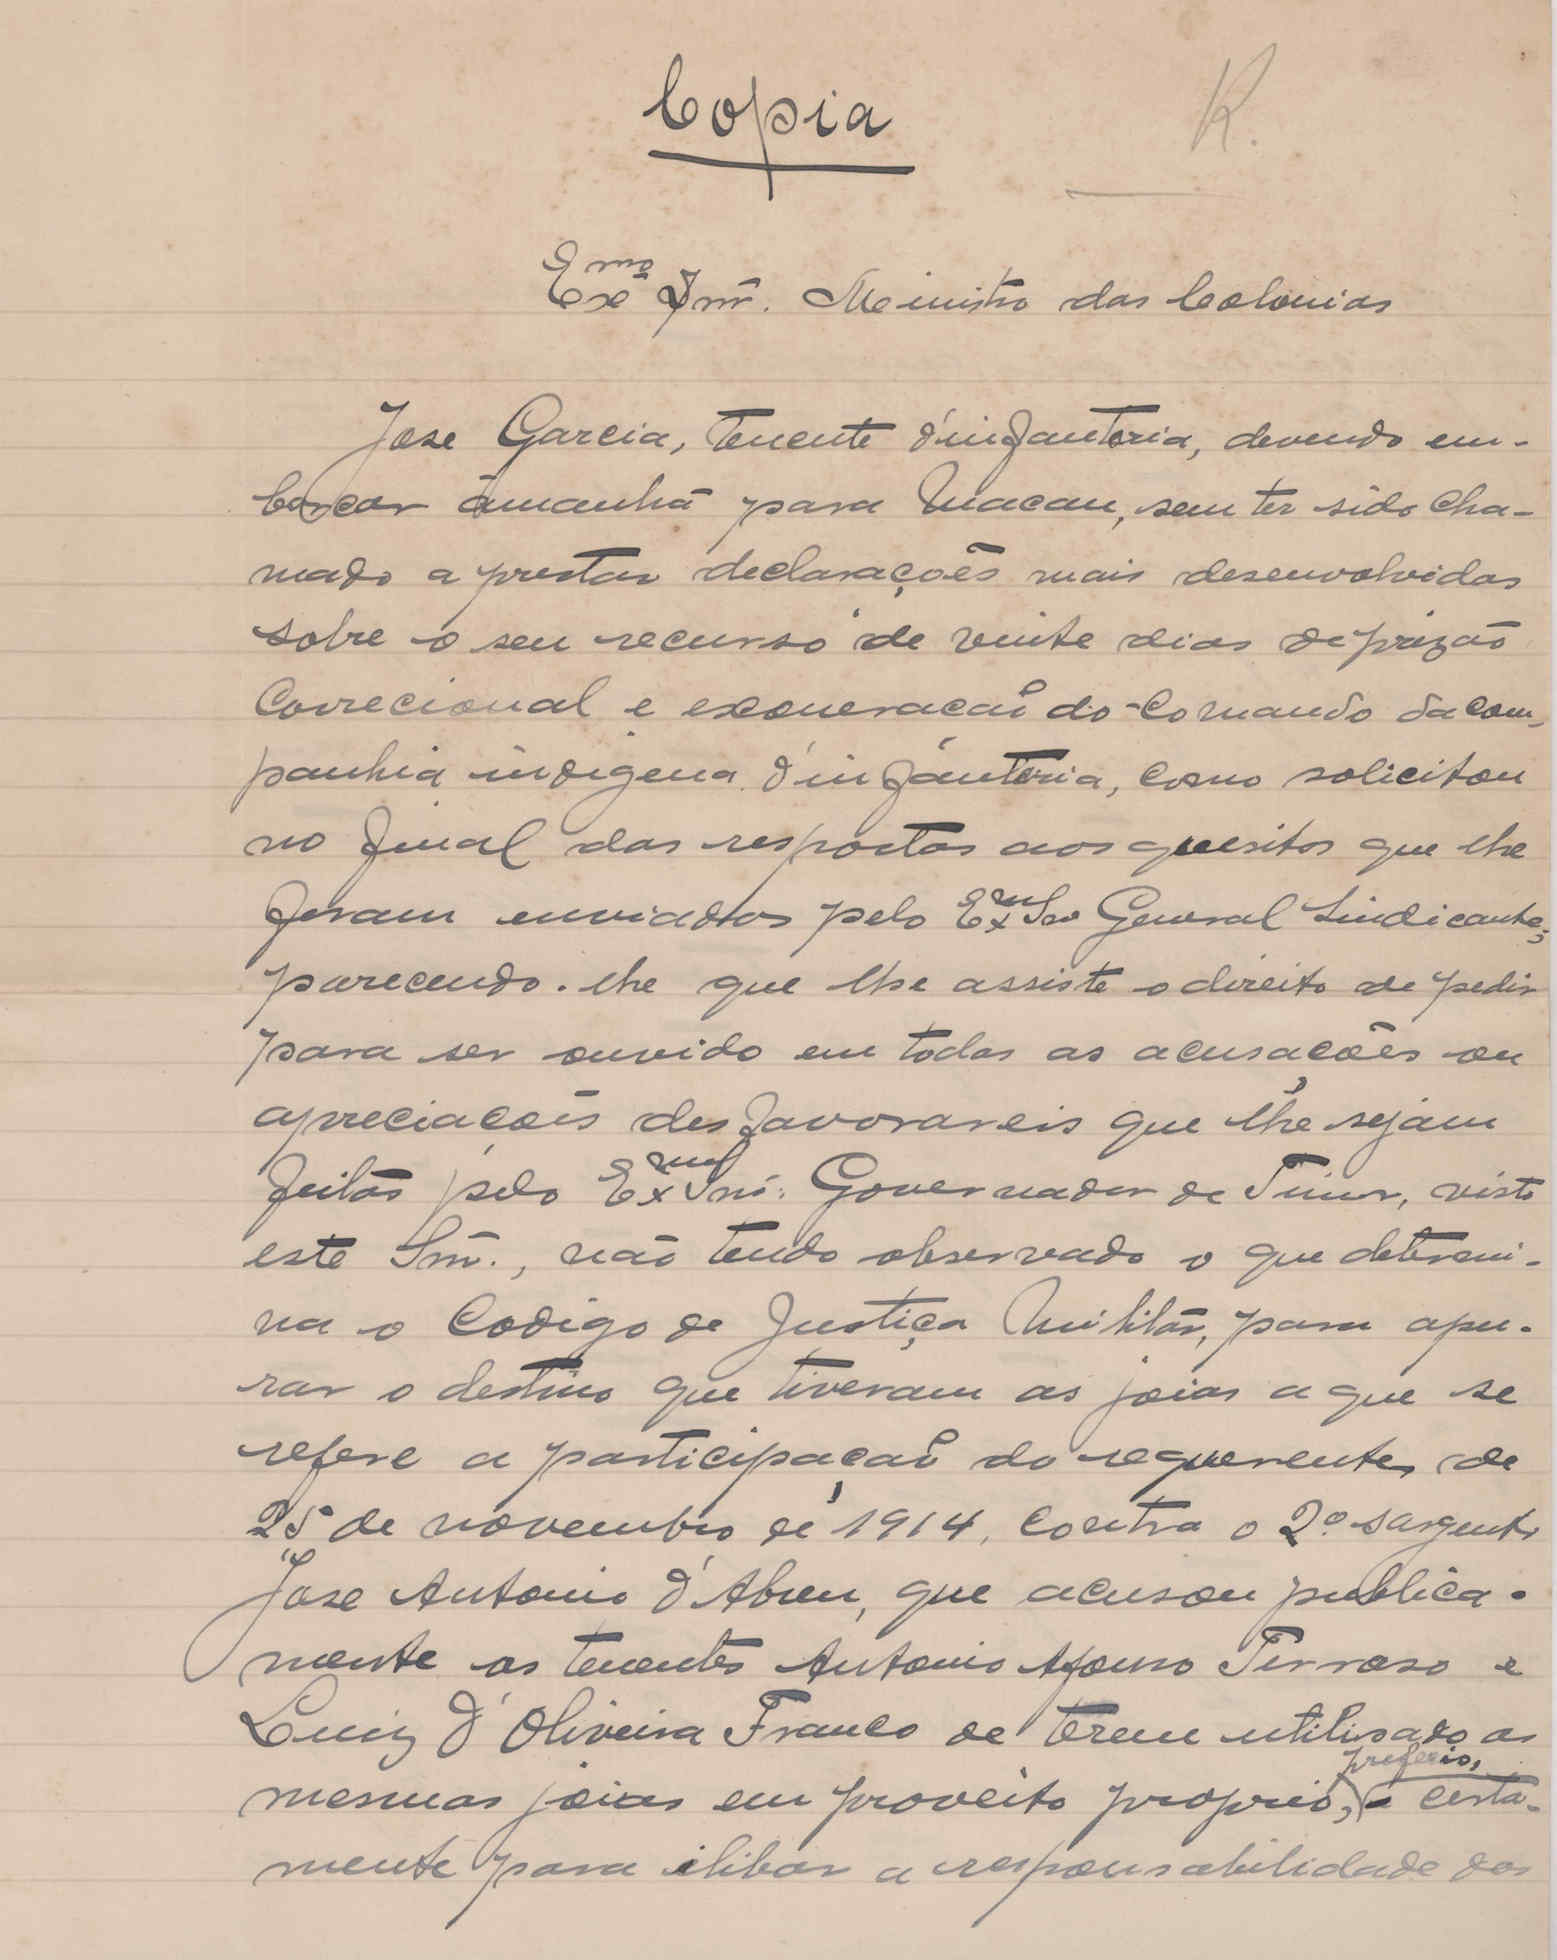 Copia
R.
Exmo Snr. Ministro das Colonias
Jose Garcia, tenente d'infantaria, devendo em-
barcar ámanhã para Macau, sem ter sido cha-
mado a prestar declarações mais desenvolvidas
sobre o seu recurso de vinte dias de prizão
Correcional e exoneração do Comando da com-
panhia indigena d'infantaria, como solicitou
no final das respostas aos quesitos que lhe
foram enviados pelo Exmo Snr General Sindicante,
parecendo-lhe que lhe assiste o direito de pedir
para ser ouvido em todas as acusações ou
apreciações desfavoraveis que lhe sejam
feitas pelo Exmo Snr. Governador de Timor, visto
este Snr., não tendo observado o que determi-
na o Codigo de Justiça Militar, para apu-
rar o destino que tiveram as joias a que se
refere a participação do requerente, de
25 de novembro de 1914, contra o 2º sargento
Jose Antonio d'Abreu, que acusou publica-
mente os tenentes Antonio Afonso Terroso e
Luiz d'Oliveira Franco de terem utilisado as
preferio,
mesmas joias em proveito proprio, certa-
mente para ilibar a responsabilidade dos